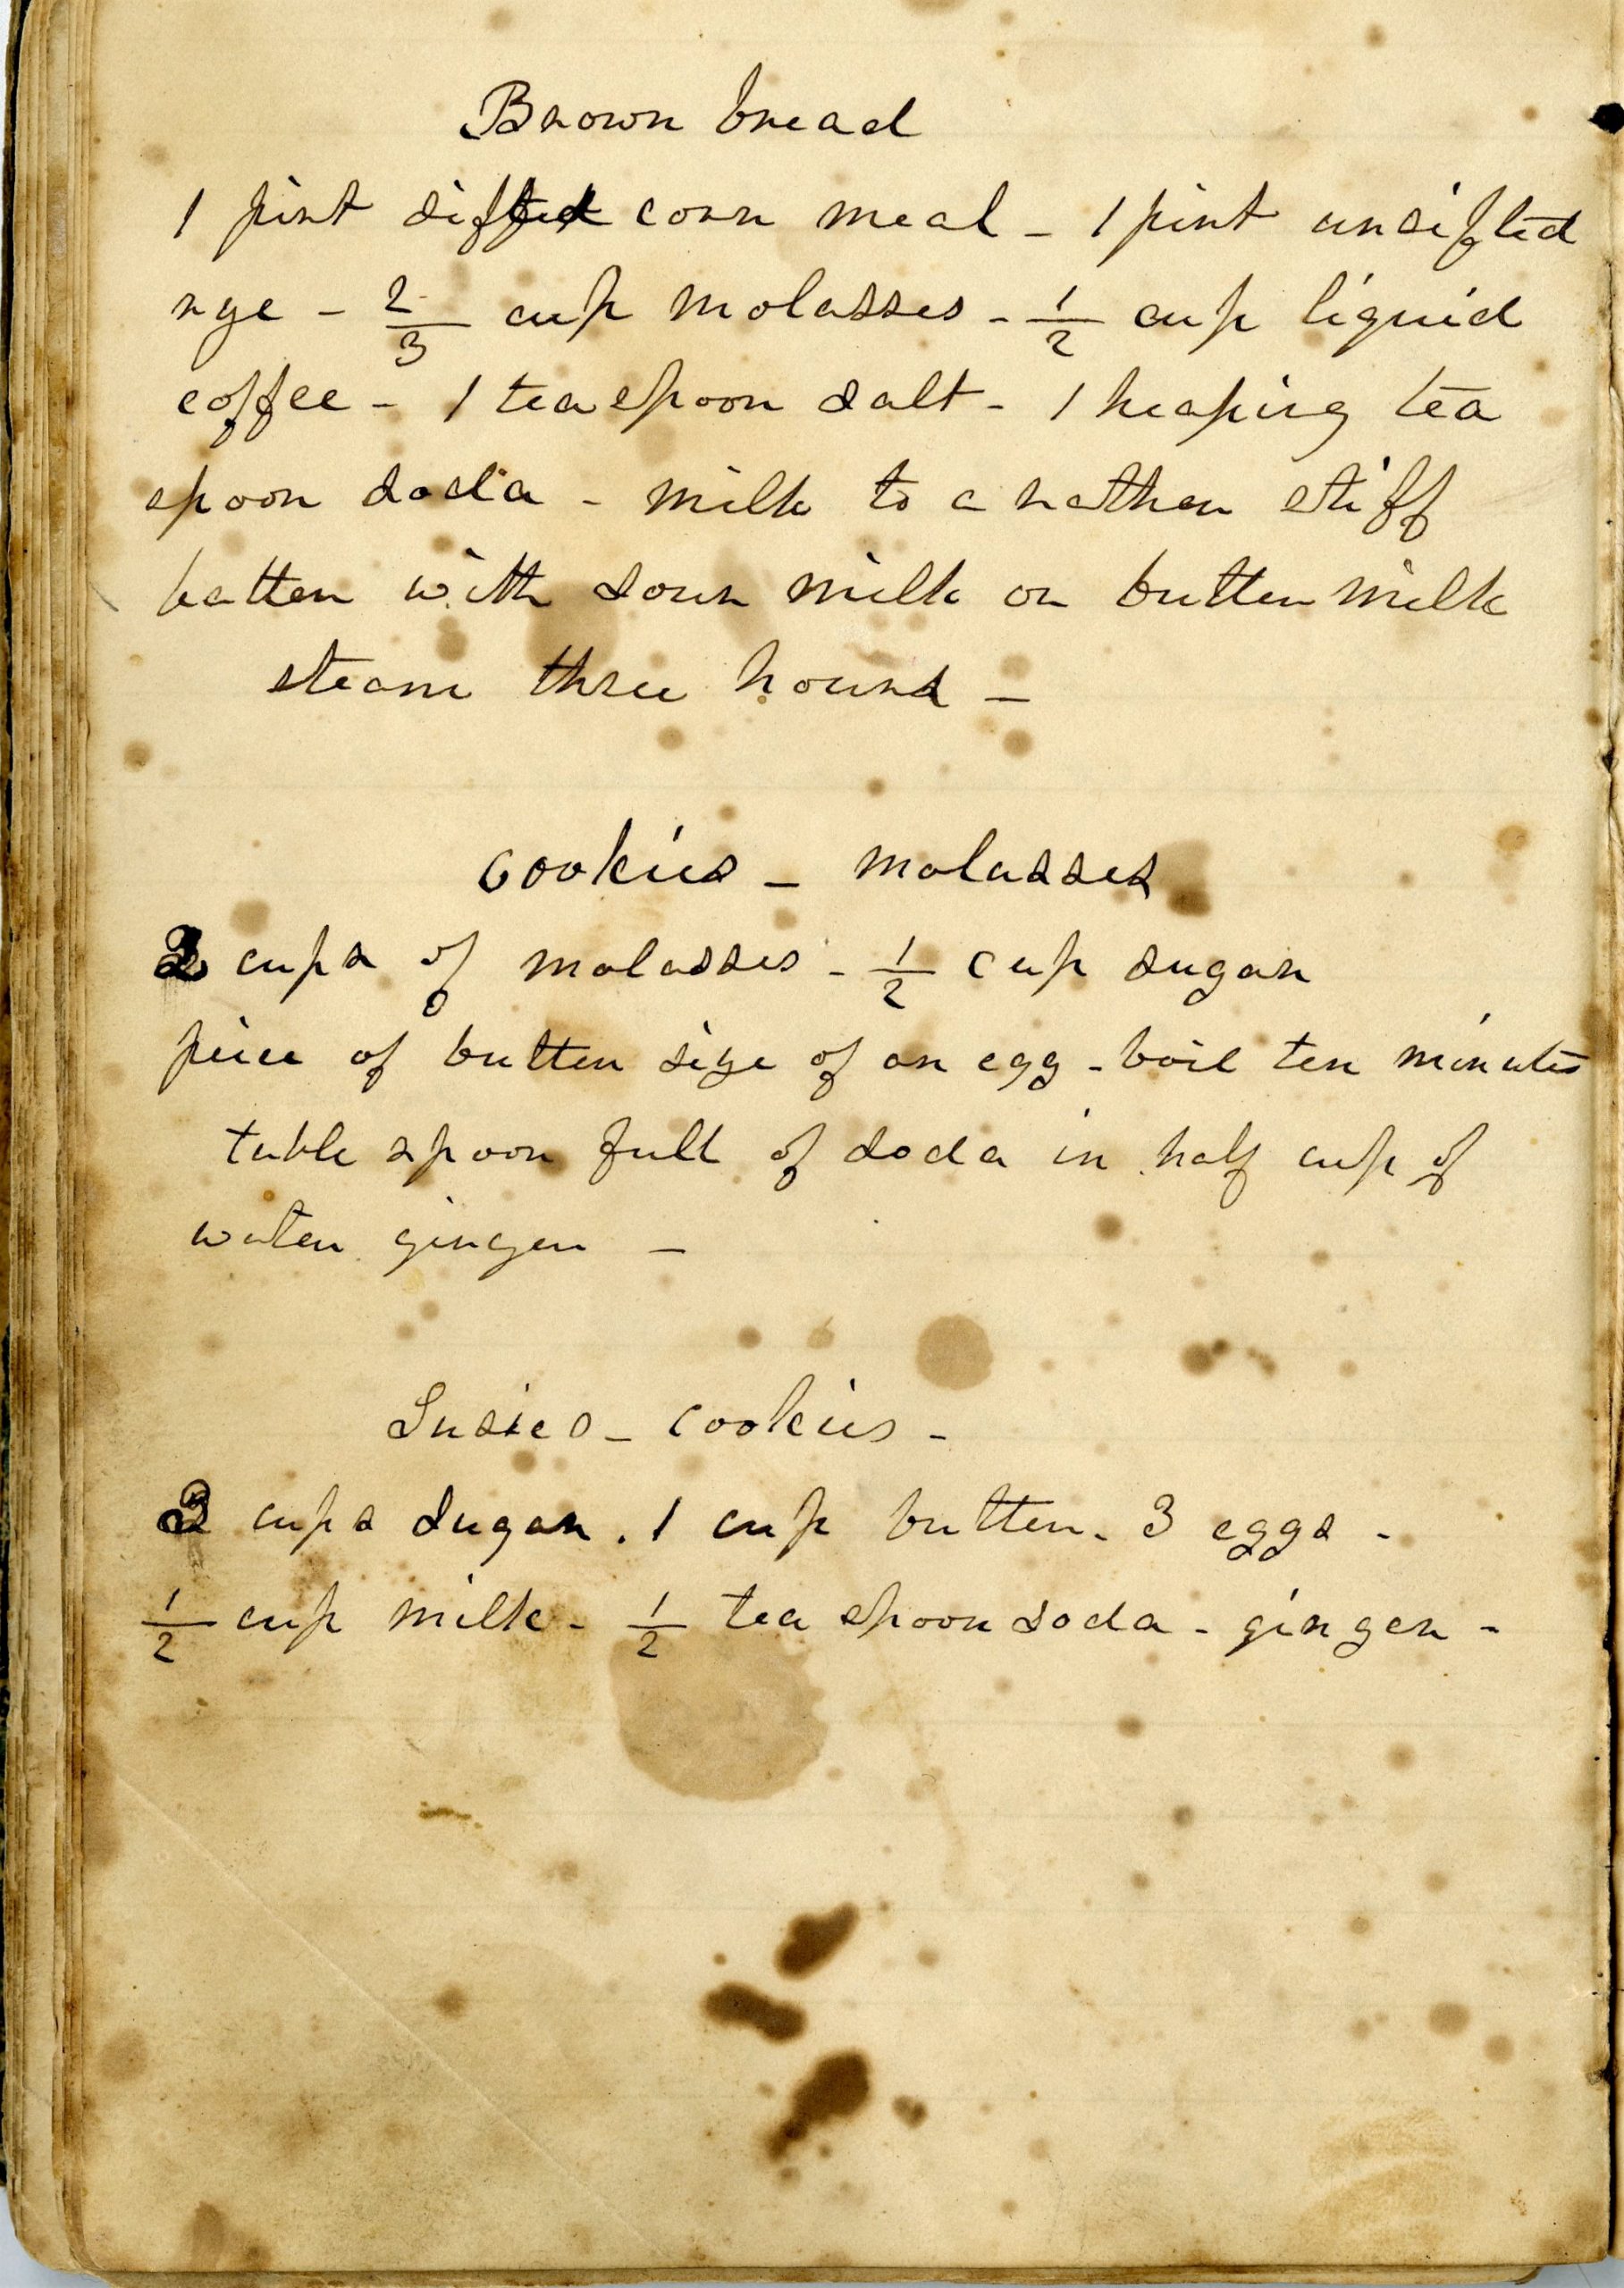 Brown bread
1 pint sifted corn meal - 1 pint unsifted
rye - 2/3 cup molasses - 1/2 cup liquid
coffee - 1 teaspoon salt - 1 heaping tea
spoon soda - milk to a rather stiff
batter with sour milk or buttermilk
steam three hours -
Cookies - molasses
2 cups of molasses - 1/2 cup sugar
piece of butter size of an egg - boil ten minutes
table spoon full of soda in half cup of
water ginger -
Susies - cookies -
2 cups sugar . 1 cup butter - 3 eggs -
1/2 cup milk - 1/2 tea spoon soda - ginger -